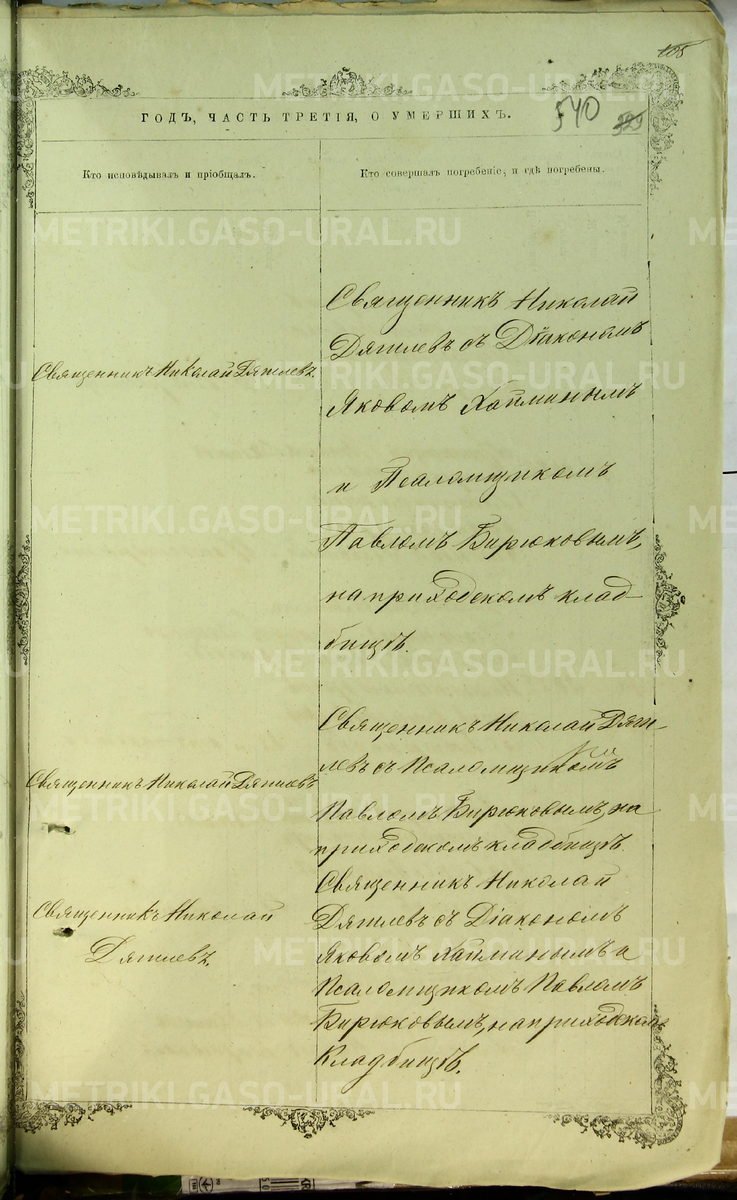 108
ГОДЪ, ЧАСТЬ ТРЕТІЯ, О УМЕРШИХЪ.
540
Кто исповѣдывалъ и пріобщалъ.
Кто совершалъ погребеніе, и гдѣ погребены.
Священникъ Николай Дягилевъ.
Священникъ Николай
Дягилевъ съ Діакономъ
Яковомъ Хайминымъ
и Псаломщикомъ
Павломъ Бирюковымъ,
на приходскомъ клад-
бищѣ.
Священникъ Николай Дягилевъ
Священникъ Николай Дяги-
левъ съ Псаломщикомъ
Павломъ Бирюковымъ, на
приходскомъ кладбищѣ.
Священникъ Николай
Дягилевъ
Священникъ Николай
Дягилевъ съ Діакономъ
Яковомъ Хайминымъ и
Псаломщикомъ Павломъ
Бирюковымъ, на приходскомъ
Кладбищѣ.
METRIKI.GASO-URAL.RU